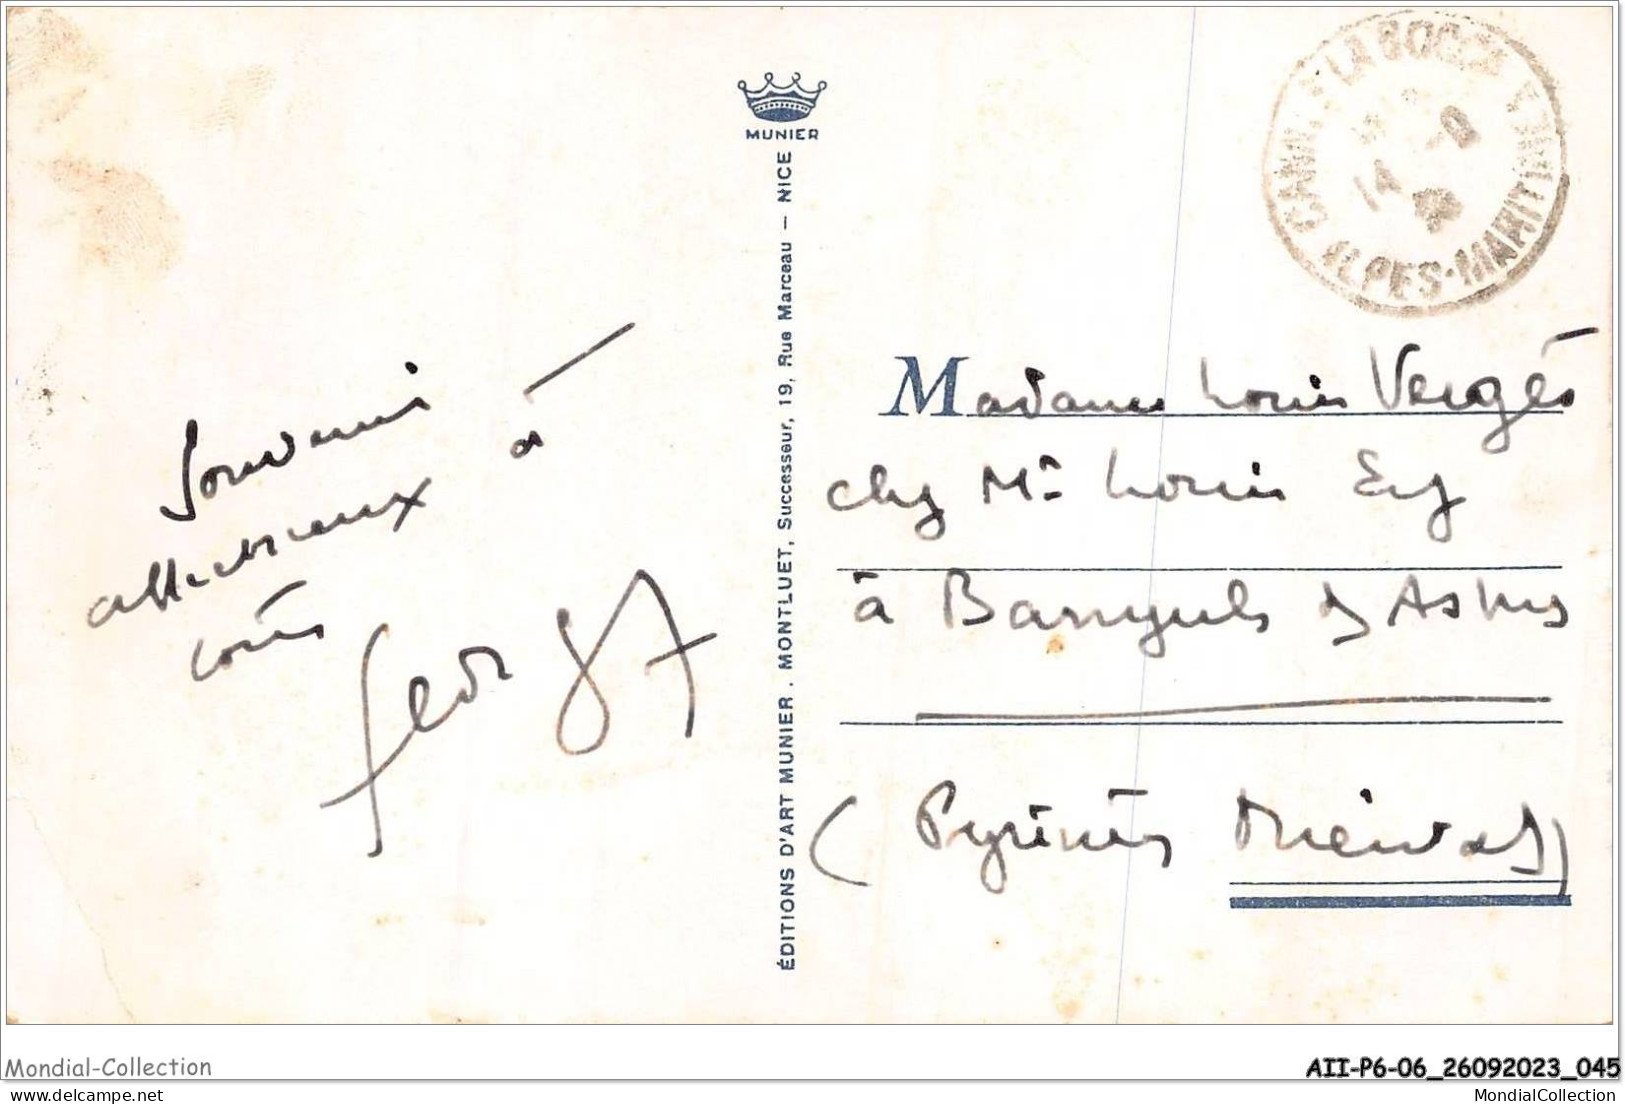 MUNIER
ÉDITIONS D'ART MUNIER. MONTLUET, Successeur, 19, Rue Marceau — NICE
ALPES-MARITIMES
14
Souvenirs
affectueux à
tous
Madame Louis Vergès
chez Mr Louis
à Banyuls des Aspres
(Pyrénées Orientales)
Mondial-Collection
AII-P6-06_26092023_045
MondialCollection